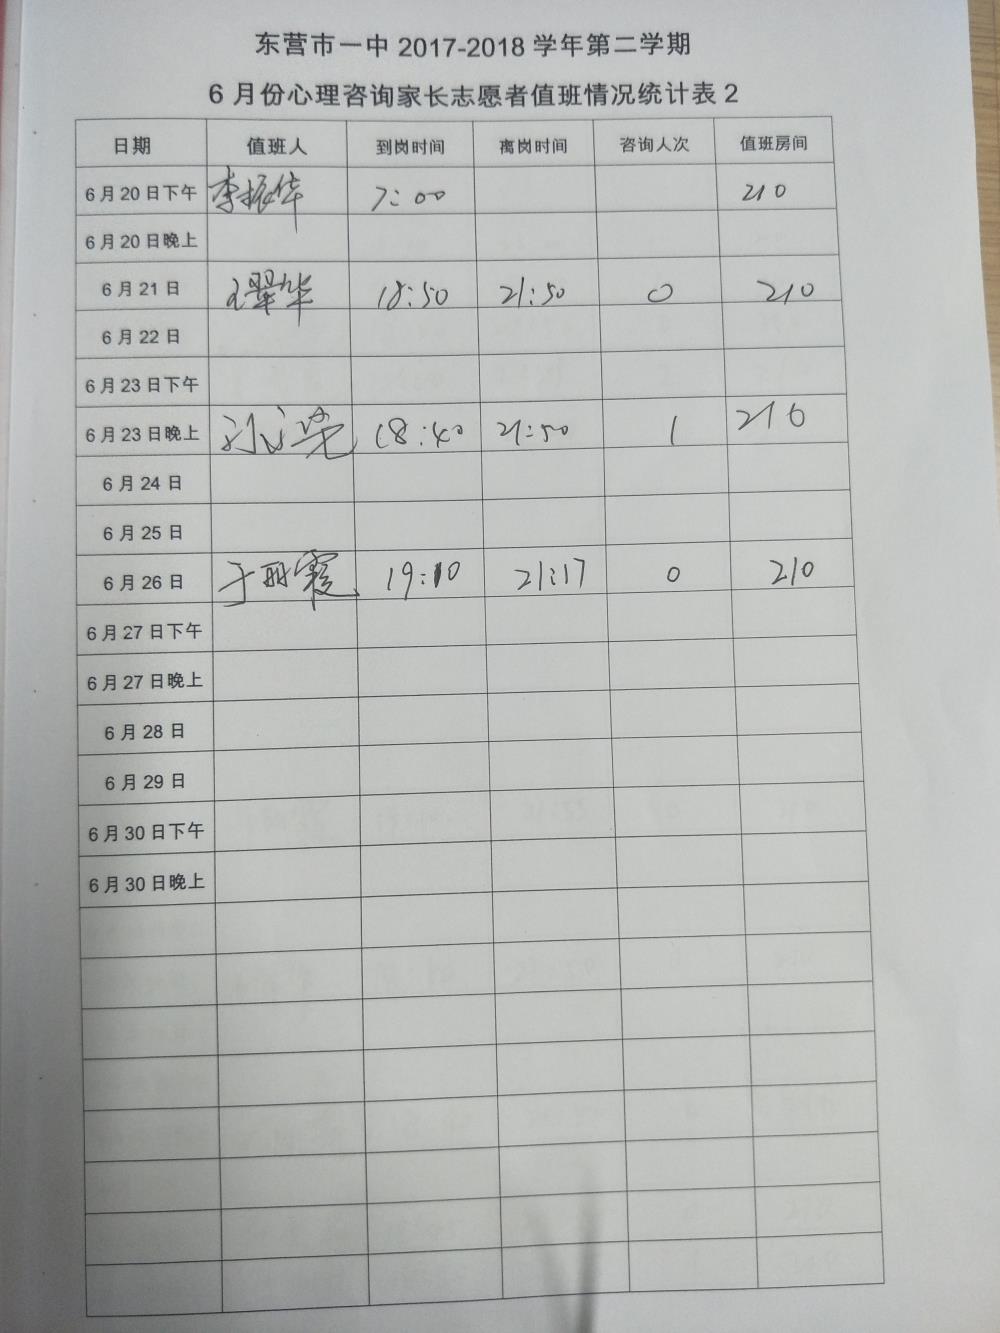 东营市一中 2017-2018 学年第二学期
6 月份心理咨询家长志愿者值班情况统计表 2
日期 值班人 到岗时间 离岗时间 咨询人次 值班房间
6 月 20 日下午 李振华 7:00 210
6 月 20 日晚上
6 月 21 日 王翠华 18:50 21:50 0 210
6 月 22 日
6 月 23 日下午
6 月 23 日晚上 18:40 21:50 1 210
6 月 24 日
6 月 25 日
6 月 26 日 于丽霞 19:10 21:17 0 210
6 月 27 日下午
6 月 27 日晚上
6 月 28 日
6 月 29 日
6 月 30 日下午
6 月 30 日晚上